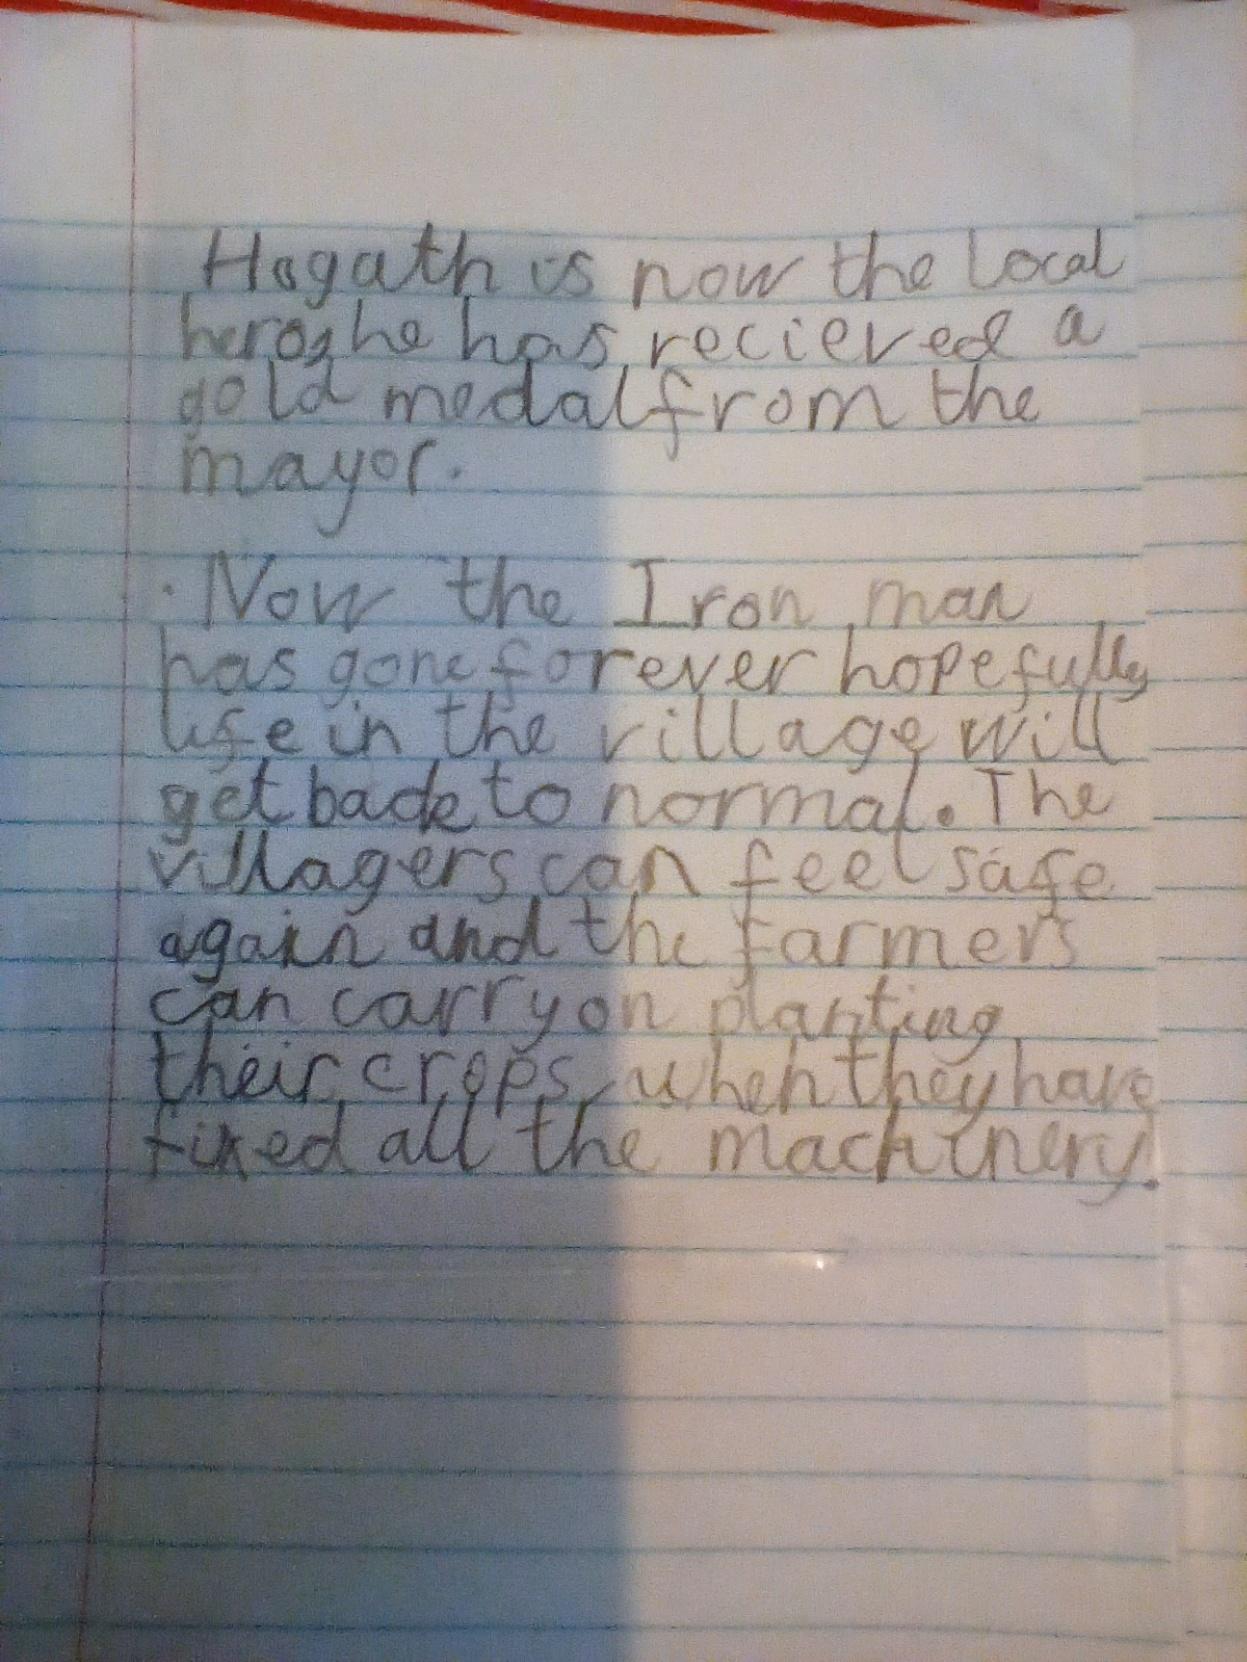 Hogath is now the local
hero, he has recieved a
gold medal from the
mayor.
. Now the Iron man
has gone forever hopefully
life in the village will
get back to normal. The
villagers can feel safe
again and the farmers
can carry on planting
their crops, when they have
fixed all the machinery.